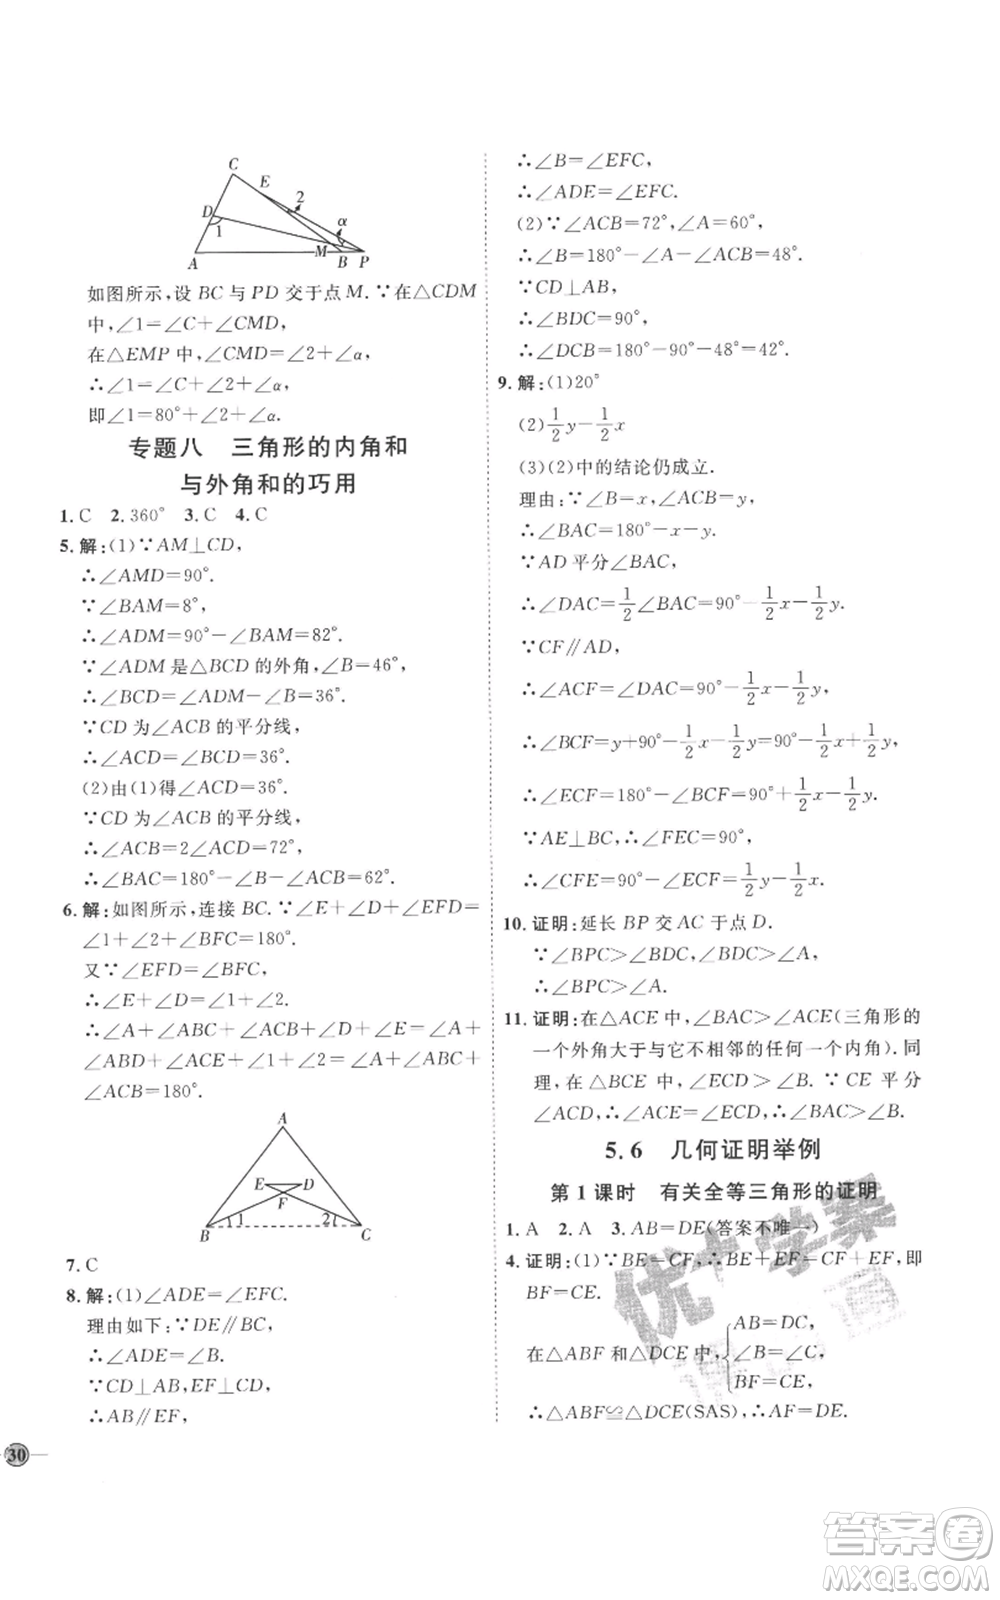 C
E
2
D
1
α
A
M
B
P
如图所示,设 BC 与 PD 交于点 M.∵在△CDM
中,∠1=∠C+∠CMD,
在△EMP 中,∠CMD=∠2+∠α
∴∠1=∠C+∠2+∠α,
即∠1=80°+∠2+∠α.
专题八 三角形的内角和
与外角和的巧用
1. C 2. 360° 3. C 4. C
5. 解:(1)∵AM⊥CD,
∴∠AMD=90°.
∵∠BAM=8°,
∴∠ADM=90°-∠BAM=82°.
∵∠ADM 是△BCD 的外角,∠B=46°,
∴∠BCD=∠ADM-∠B=36°.
∵CD 为∠ACB 的平分线,
∴∠ACD=∠BCD=36°.
(2)由(1)得∠ACD=36°.
∵CD 为∠ACB 的平分线,
∴∠ACB=2∠ACD=72°,
∴∠BAC=180°-∠B-∠ACB=62°.
6. 解:如图所示,连接 BC.∵∠E+∠D+∠EFD=
∠1+∠2+∠BFC=180°.
又∵∠EFD=∠BFC,
∴∠E+∠D=∠1+∠2.
∴∠A+∠ABD+∠ACE+∠D+∠E=∠A+
∠ABD+∠ACE+∠1+∠2=∠A+∠ABC+
∠ACB=180°.
A
E
D
F
1
2
B
C
7. C
8. 解:(1)∠ADE=∠EFC.
理由如下:∵DE∥BC,
∴∠ADE=∠B.
∵CD⊥AB,EF⊥CD,
∴AB∥EF,
30
∴∠B=∠EFC,
∴∠ADE=∠EFC.
(2)∵∠ACB=72°,∠A=60°,
∴∠B=180°-∠A-∠ACB=48°.
∵CD⊥AB,
∴∠BDC=90°,
∴∠DCB=180°-90°-48°=42°.
9. 解:(1)20°
(2)1/2y-1/2x
(3)(2)中的结论仍成立.
理由:∵∠B=x,∠ACB=y,
∴∠BAC=180°-x-y.
∵AD 平分∠BAC,
∴∠DAC=1/2∠BAC=90°-1/2x-1/2y.
∵CF∥AD,
∴∠ACF=∠DAC=90°-1/2x-1/2y,
∴∠BCF=y+90°-1/2x-1/2y=90°-1/2x+1/2y,
∴∠ECF=180°-∠BCF=90°+1/2x-1/2y.
∵AE⊥BC,∴∠FEC=90°,
∴∠CFE=90°-∠ECF=1/2y-1/2x.
10. 证明:延长 BP 交 AC 于点 D.
∵∠BPC>∠BDC,∠BDC>∠A,
∴∠BPC>∠A.
11. 证明:在△ACE 中,∠BAC>∠ACE(三角形的
一个外角大于与它不相邻的任何一个内角).同
理,在△BCE 中,∠ECD>∠B.∵CE 平分
∠ACD,∴∠ACE=∠ECD,∴∠BAC>∠B.
5.6 几何证明举例
第 1 课时 有关全等三角形的证明
1. A 2. A 3. AB=DE(答案不唯一)
4. 证明:(1)∵BE=CF,∴BE+EF=CF+EF,即
BF=CE.
在△ABF 和△DCE 中,{AB=DC,
∠B=∠C,
BF=CE,
∴△ABF≌△DCE(SAS),∴AF=DE.
优+学案
答案圈
MXQE.COM